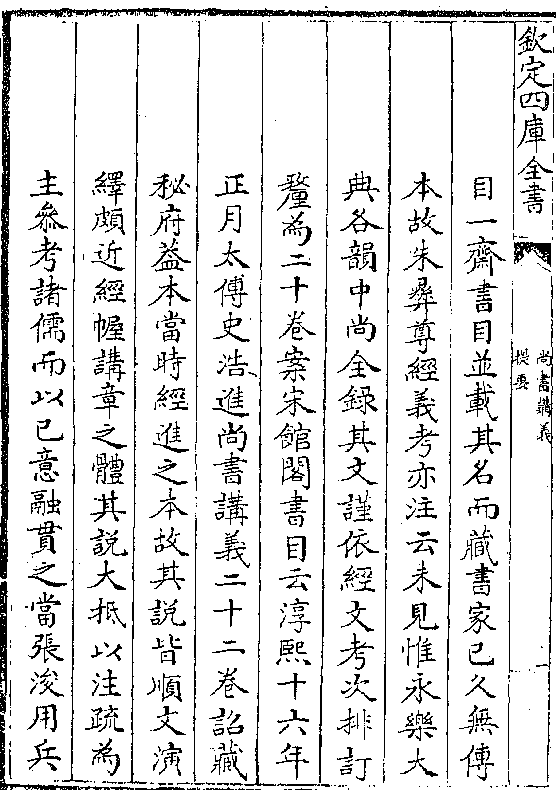 欽定四庫全書
尚書講義
提要
目一齋書目並載其名而藏書家已久無傳
本故朱彞尊經義考亦注云未見惟永樂大
典各韻中尚全録其文謹依經文考次排訂
釐為二十卷案宋館閣書目云淳熙十六年
正月太傅史浩進尚書講義二十二卷詔藏
秘府蓋本當時經進之本故其説皆順文演
繹頗近經幄講章之體其説大抵以注疏為
主參考諸儒而以已意融貫之當張浚用兵